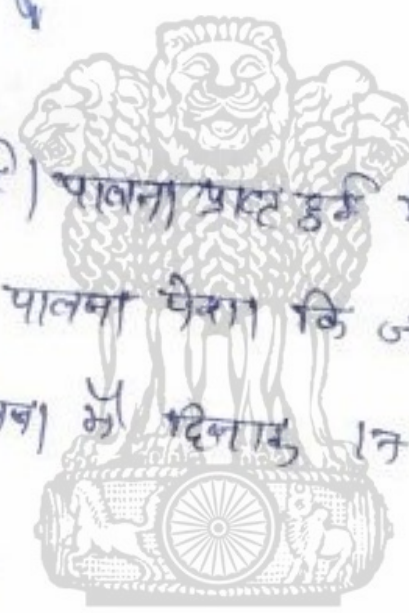 । पालना प्राप्त हुई
पालना पेश कि
में दिनांक